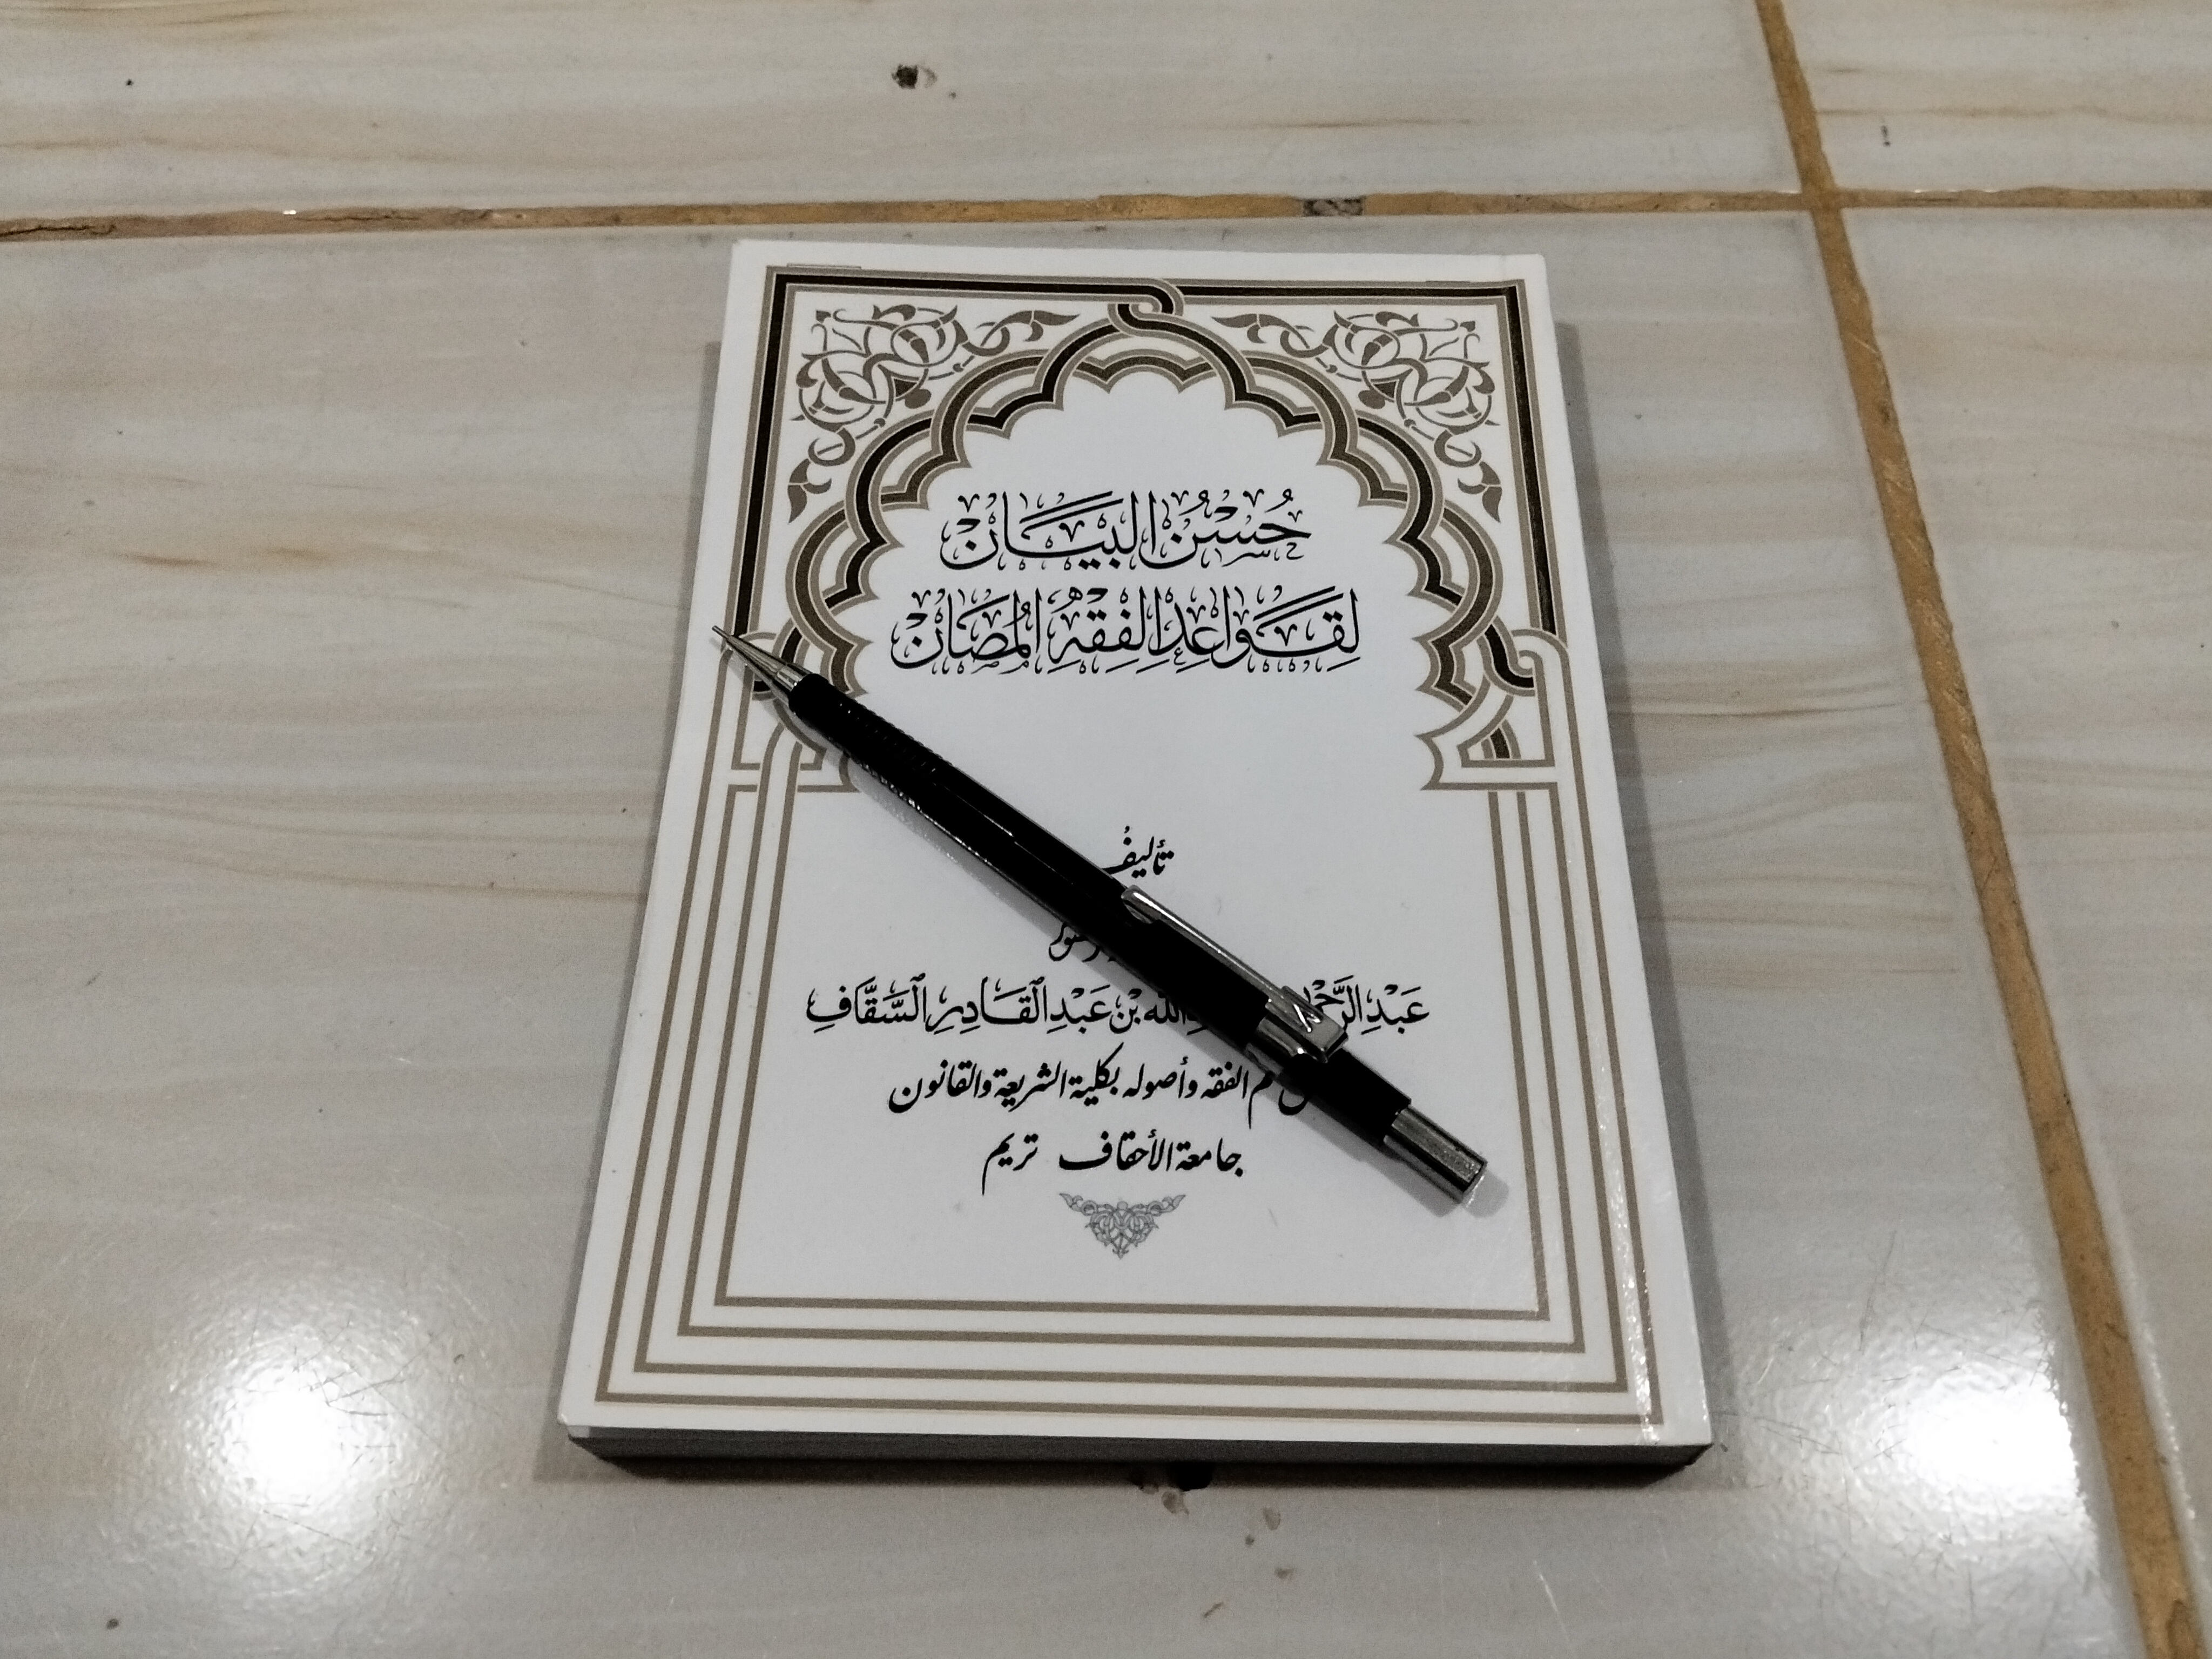 حُسْنُ البَيَانْ
لِقَوَاعِدِ الفِقْهِ المُصَانْ
تأليفُ
عَبْدِ الرَّحْمٰنِ الله بْنِ عَبْدِ القَادِرِ السَّقَّافِ
الفقه وأصوله بكلية الشريعة والقانون
جامعة الأحقاف تريم